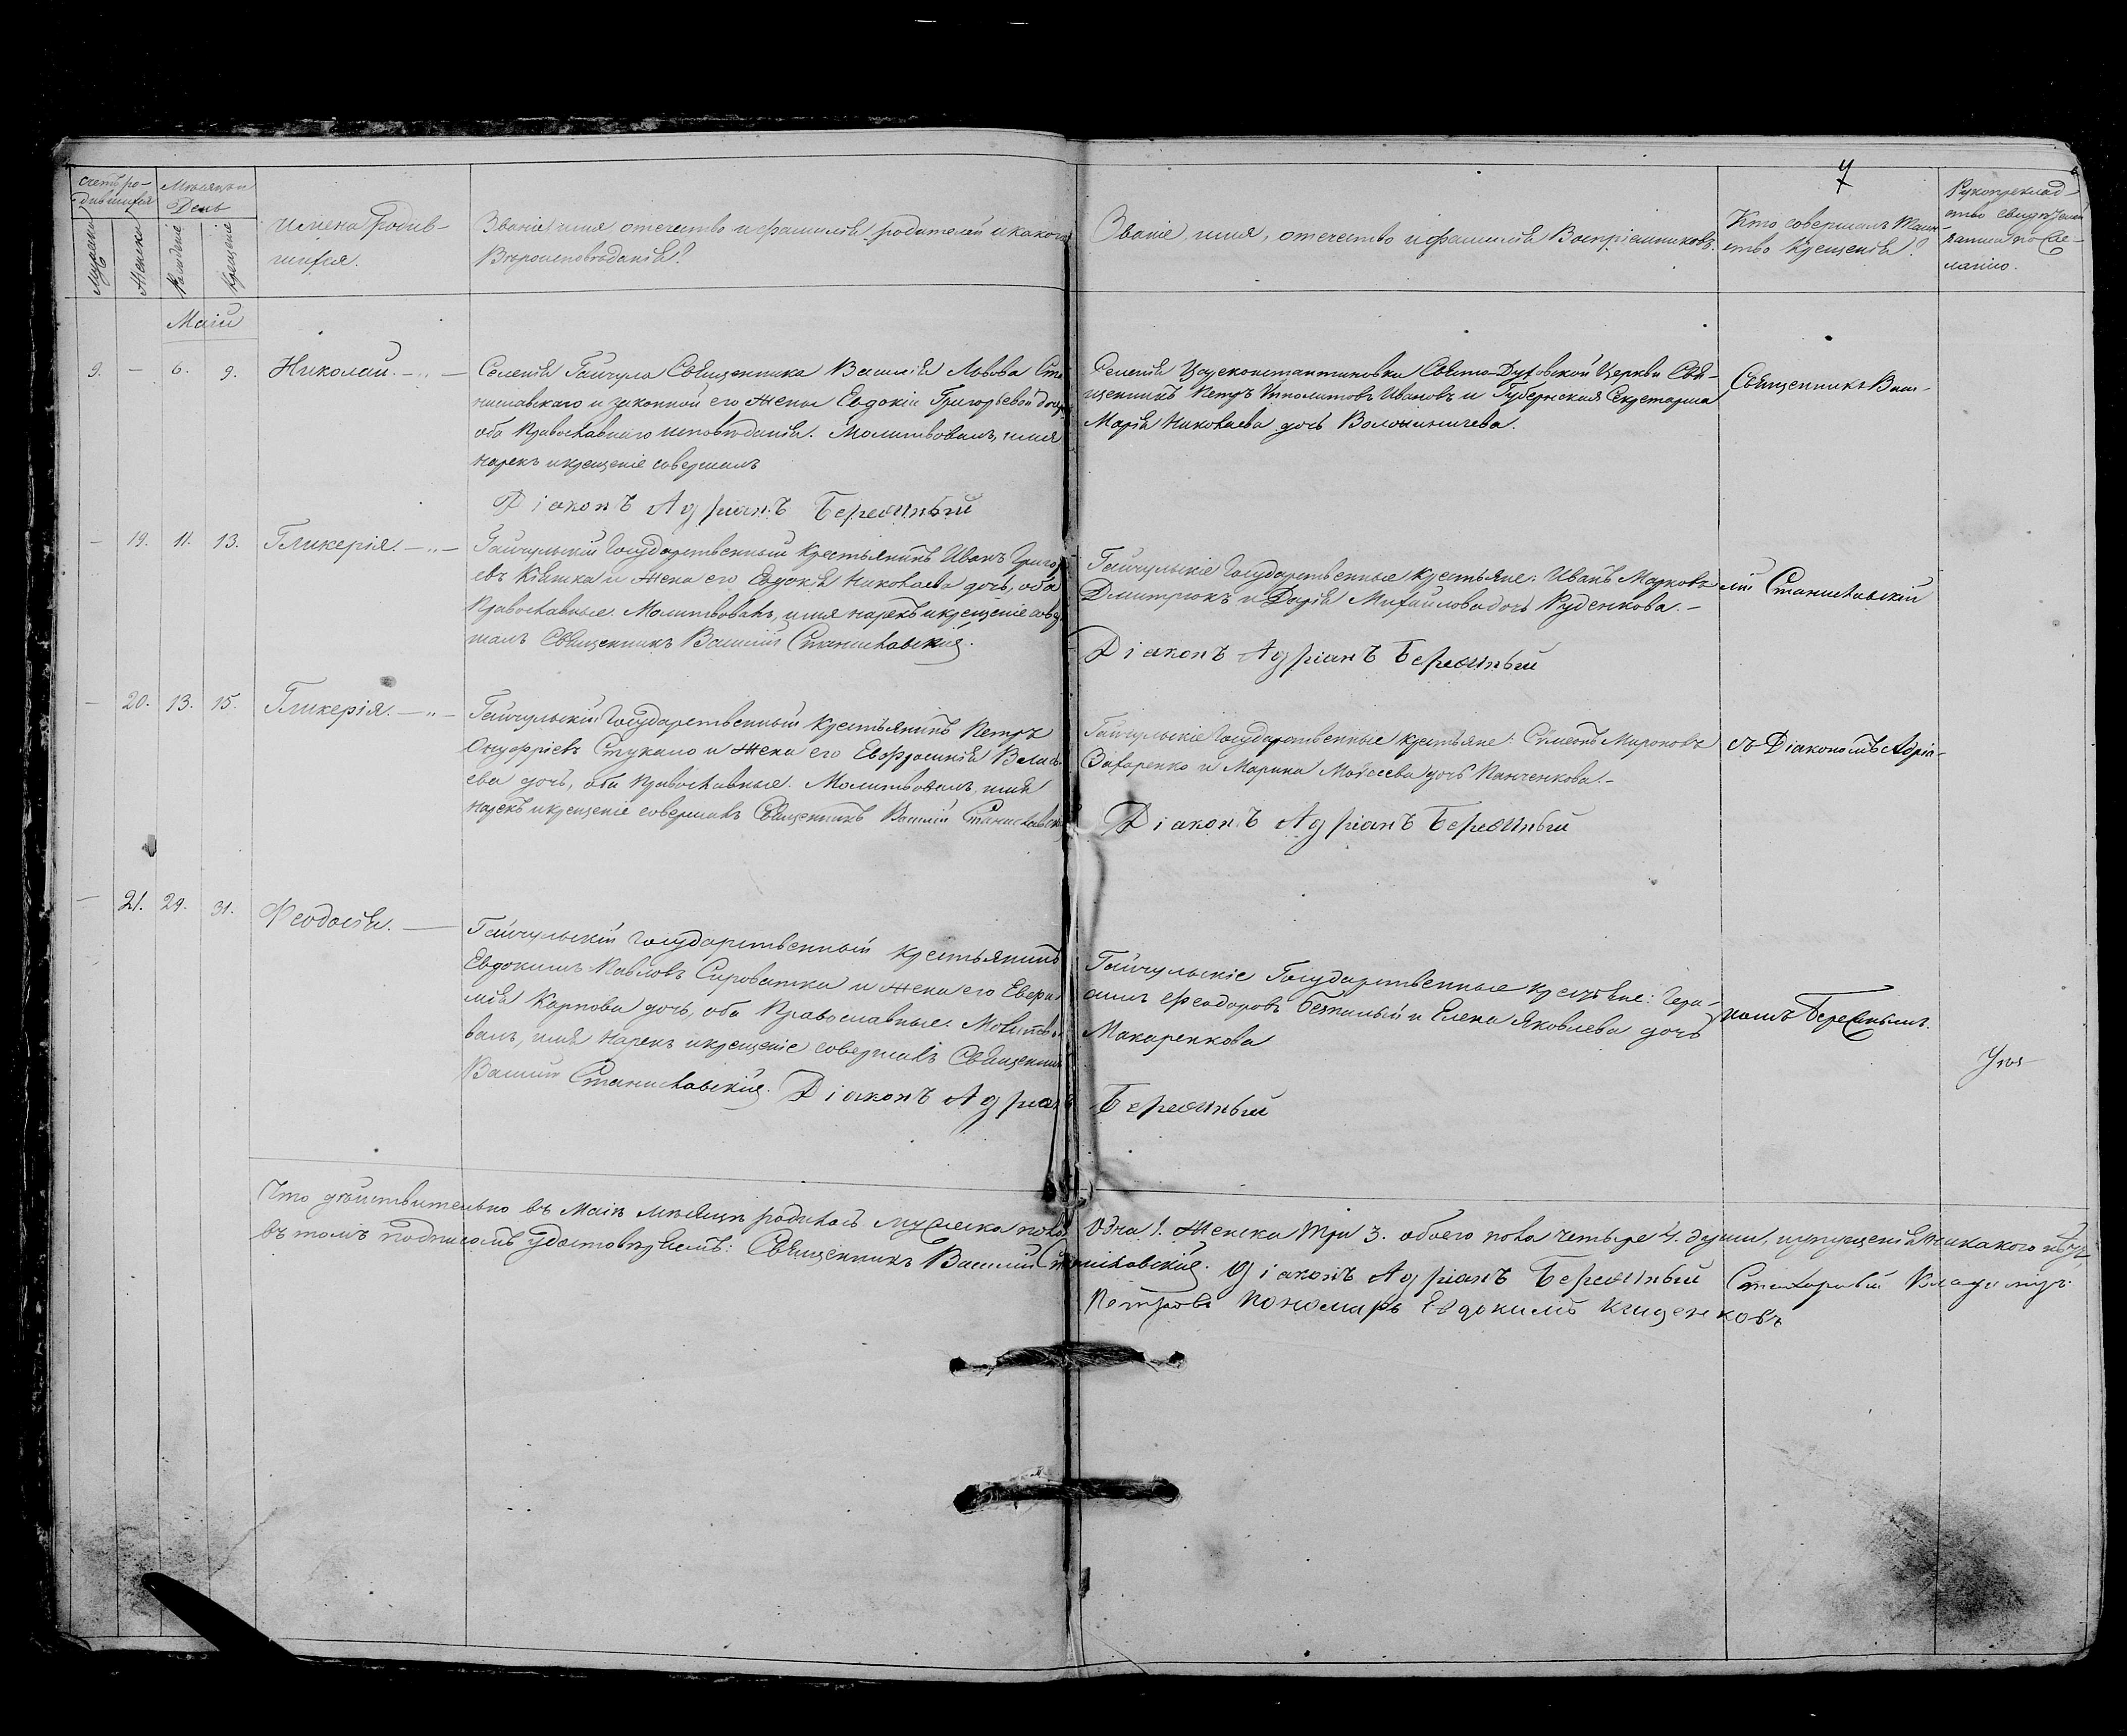 7
Счетъ ро-
дившихся
Мужеска
Женска
Мѣсяцъ и
День
Рожденіе
Крещеніе
Имена родив-
шихся.
Званіе, имя отечество и фамилія родителей и какого
Вѣроисповѣданія?
Званіе, имя, отечество и фамилія Воспріемниковъ.
Кто совершалъ Таин-
ство Крещенія?
Рукоприклад
ство свидѣтелей
записи по Же-
ланію.
Маій
9. — 6. 9. Николай. — „ —
Селенія Гайчула Священника Василія Львова Ста
ниславскаго и законной его жены Евдокіи Григорьевой дочь
оба Православнаго исповѣданія. Молитвовалъ, имя
нарекъ и крещеніе совершалъ
Діаконъ Адріанъ Бересиный
Селенія Цареконстантиновки Свято-Духовской Церкви Свя-
щенникъ Петръ Ипполитовъ Ивановъ и Губернская Секретарша
Марія Николаева дочь
Священникъ Васи-
— 19. 11. 13. Гликерія. — „ —
Гайчульскій Государственный Крестьянинъ Иванъ Григорь
евъ Квятка и жена его Евдокія Николаева дочь, оба
Православные. Молитвовалъ, имя нарекъ и крещеніе совер
шалъ Священникъ Василій Станиславскій.
Гайчульскіе Государственные крестьяне: Иванъ Марковъ
Дмитрюкъ и Дарія Михайлова дочь Руденкова. —
Діаконъ Адріанъ Бересиный
лій Станиславскій
— 20. 13. 15. Гликерія. — „ —
Гайчульскій Государственный Крестьянинъ Петръ
Онуфріевъ Стукало и жена его Евфросинія Власі
ева дочь, оба Православные. Молитвовалъ, имя
нарекъ и крещеніе совершалъ Священникъ Василій Станиславскій
Гайчульскіе Государственные крестьяне: Симеонъ Мироновъ
Захаренко и Марина Моисеева дочь Панченкова. —
Діаконъ Адріанъ Бересиный
съ Діакономъ Адріа-
— 21. 29. 31. Феодосія. —
Гайчульскій Государственный крестьянинъ
Евдокимъ Павловъ Сироватка и жена его Евфи
мія Карпова дочь, оба Православные. Молитво
валъ, имя нарекъ и крещеніе совершалъ Священникъ
Василій Станиславскій. Діаконъ Адріанъ
Гайчульскіе Государственные крестьяне: Гера-
симъ Феодоровъ и Елена Яковлева дочь
Макаренкова
Бересиный
номъ Бересинымъ.
Что дѣйствительно въ Маіѣ мѣсяцѣ родилось мужеска пола одна 1. женска три 3. обоего пола четыре 4. души, и упущенія никакого нѣтъ,
въ томъ подписомъ удостовѣряемъ: Священникъ Василій Станиславскій. Діаконъ Адріанъ Бересиный Владиміръ
Петровъ Пономарь Евдокимъ